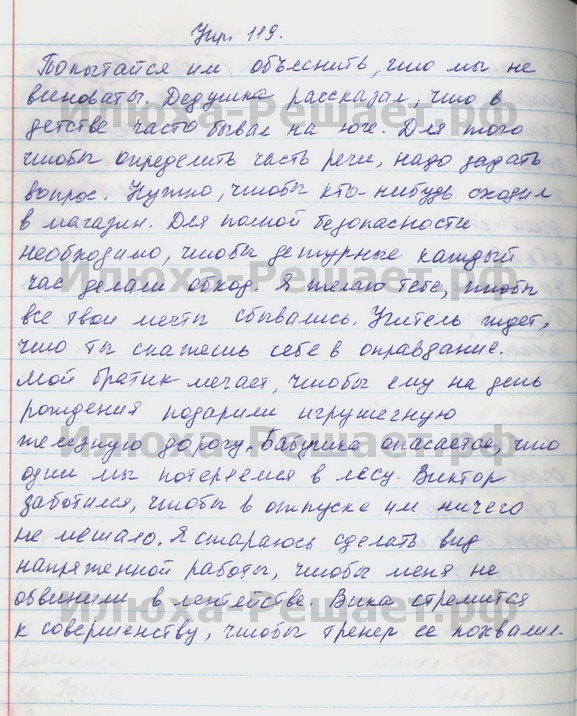 Упр. 119.
Попытайся им объяснить, что мы не
виноваты. Дедушка рассказал, что в
детстве часто бывал на юге. Для того
чтобы определить часть речи, надо задать
вопрос. Нужно, чтобы кто-нибудь сходил
в магазин. Для полной безопасности
необходимо, чтобы дежурные каждый
час делали обход. Я желаю тебе, чтобы
все твои мечты сбывались. Учитель ждет,
что ты скажешь себе в оправдание.
Мой братик мечтает, чтобы ему на день
рождения подарили игрушечную
железную дорогу. Бабушка опасается, что
одни мы потеряемся в лесу. Виктор
заботился, чтобы в отпуске им ничего
не мешало. Я стараюсь сделать вид
напряженной работы, чтобы меня не
обвинили в лентяйстве. Вика стремится
к совершенству, чтобы тренер ее похвалил.
Илюха-Решает.рф
Илюха-Решает.рф
Илюха-Решает.рф
Илюха-Решает.рф